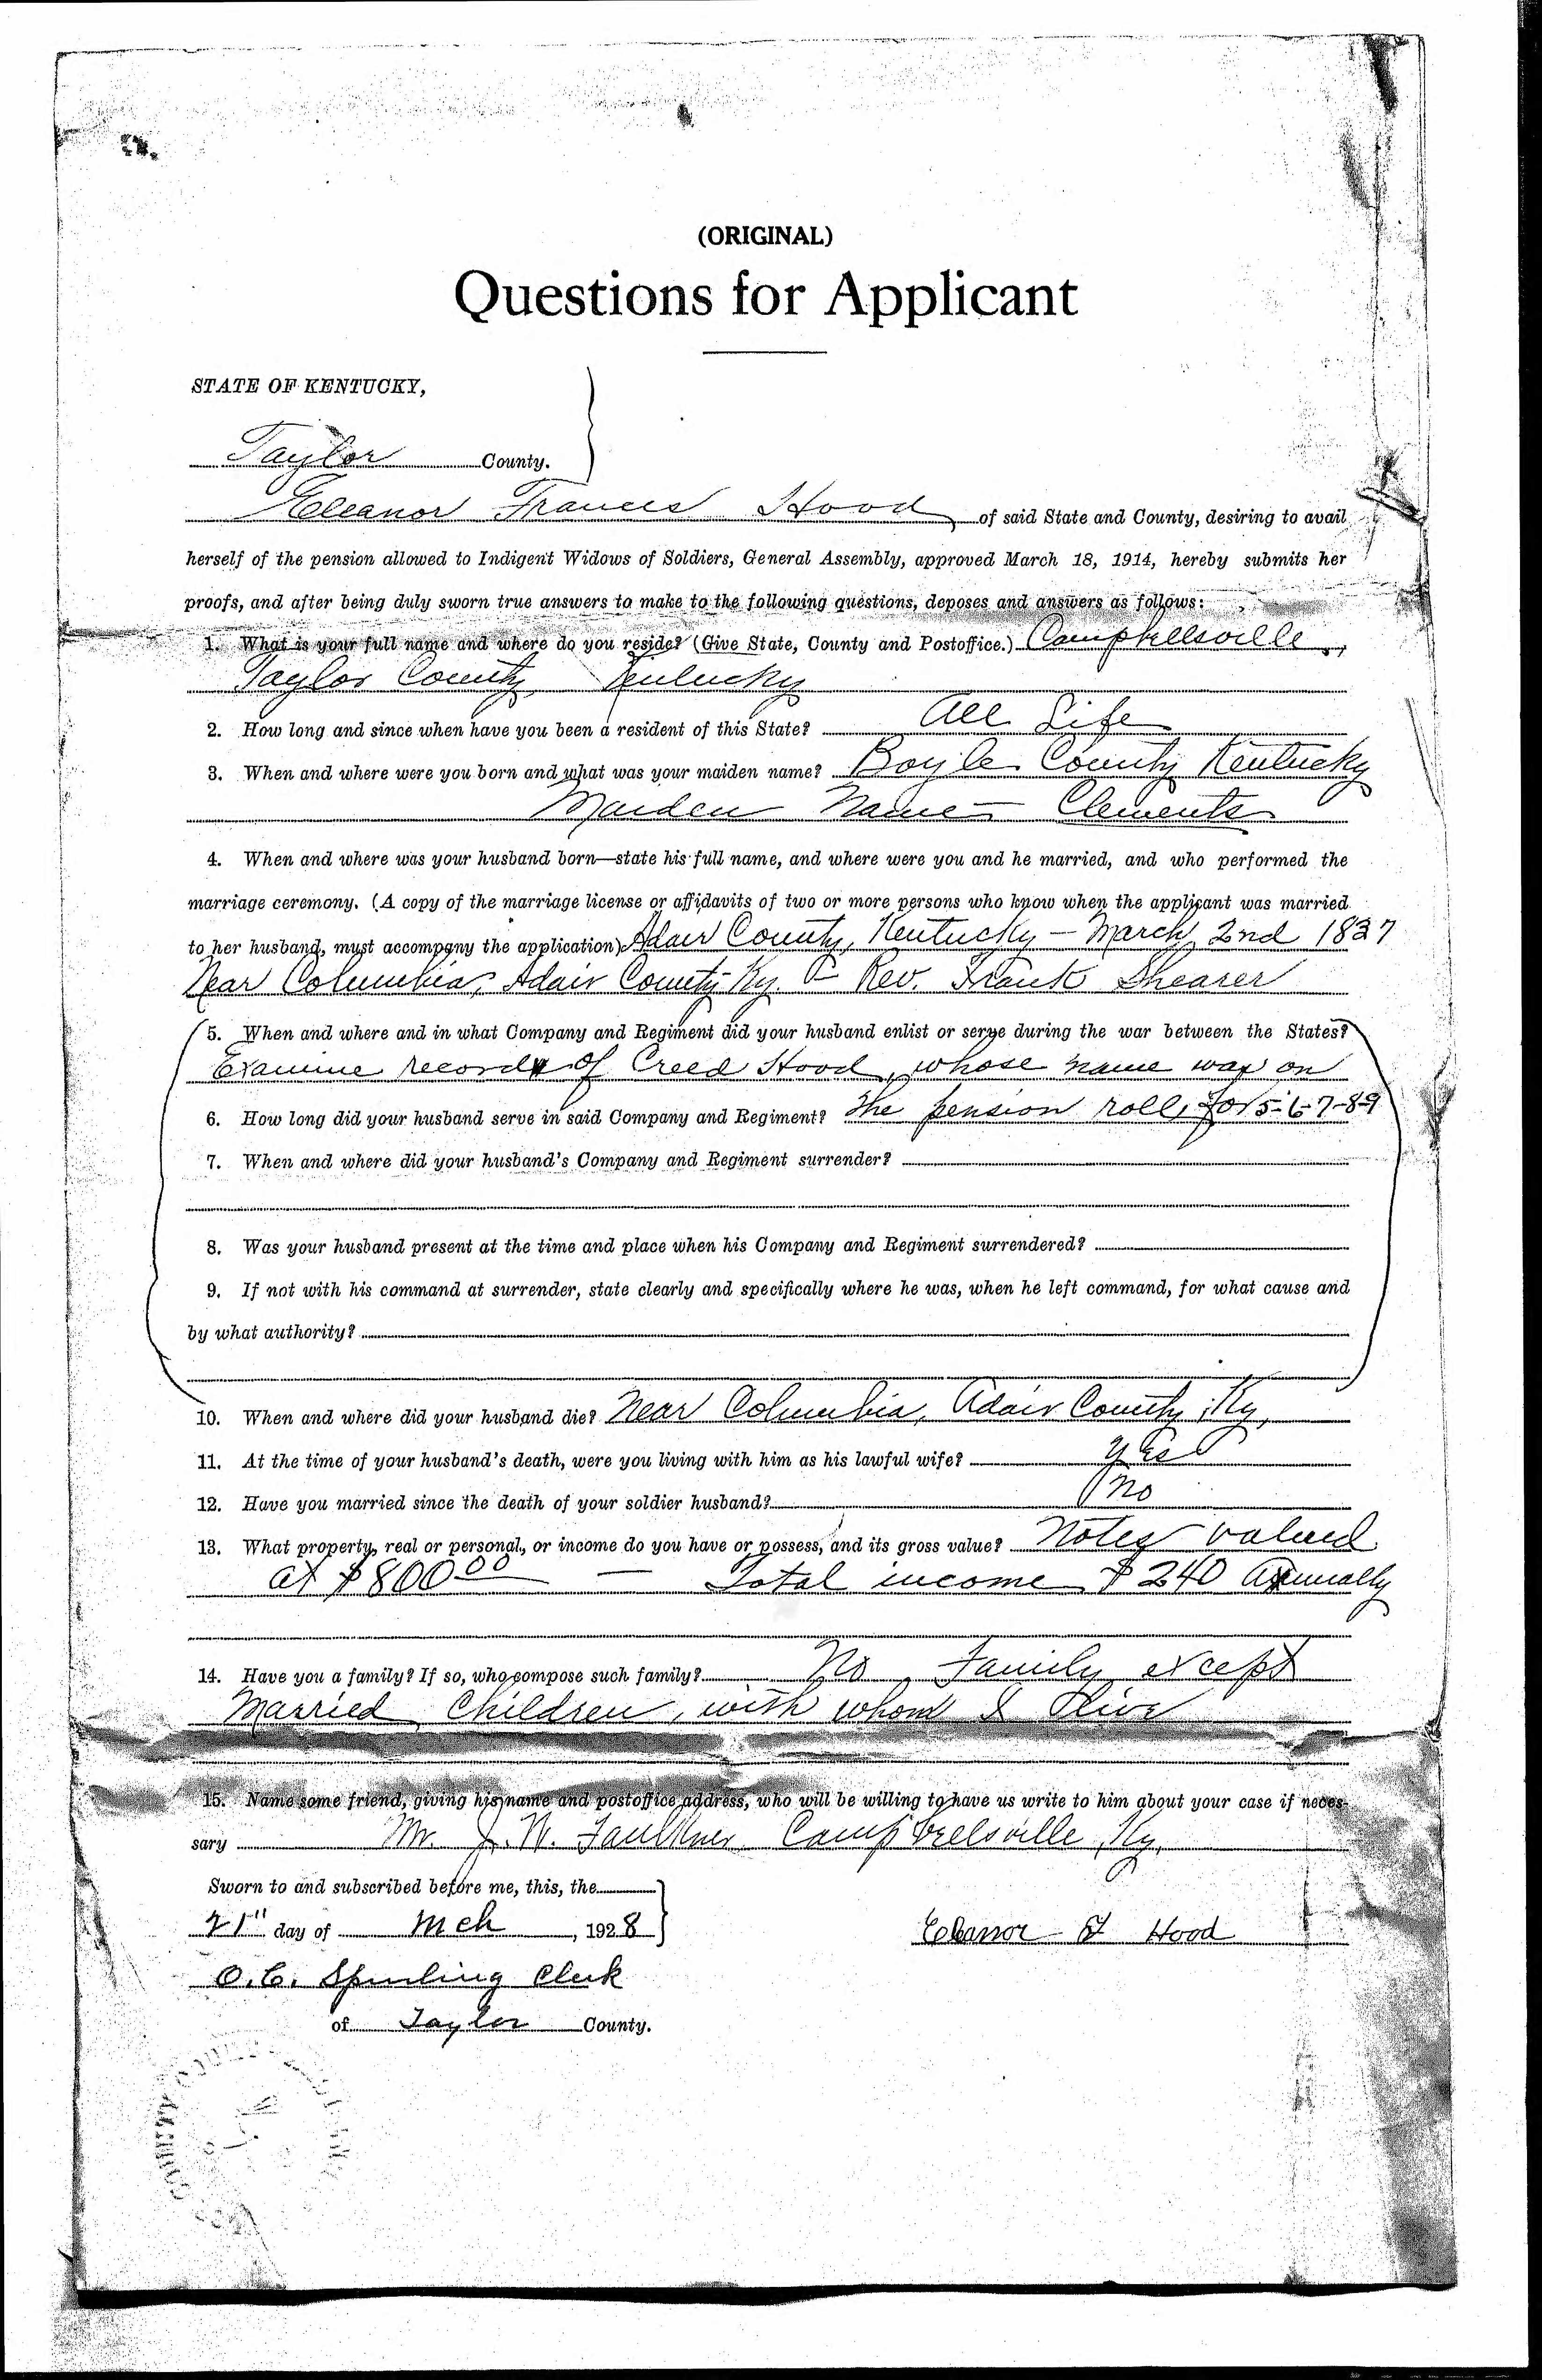 (ORIGINAL)
Questions for Applicant
STATE OF KENTUCKY,
Taylor County.
Eleanor Frances Hood, of said State and County, desiring to avail
herself of the pension allowed to Indigent Widows of Soldiers, General Assembly, approved March 18, 1914, hereby submits her
proofs, and after being duly sworn true answers to make to the following questions, deposes and answers as follows:
1. What is your full name and where do you reside? (Give State, County and Postoffice.) Campbellsville,
Taylor County Kentucky
2. How long and since when have you been a resident of this State? All Life
3. When and where were you born and what was your maiden name? Boyle County Kentucky
Maiden Name - Clements
4. When and where was your husband born—state his full name, and where were you and he married, and who performed the
marriage ceremony. (A copy of the marriage license or affidavits of two or more persons who know when the applicant was married
to her husband, must accompany the application) Adair County, Kentucky - March 2nd 1837
Near Columbia, Adair County Ky. Rev. Frank Shearer
5. When and where and in what Company and Regiment did your husband enlist or serve during the war between the States?
Examine record of Creed Hood, whose name was on
6. How long did your husband serve in said Company and Regiment? the pension roll, for 5-6-7-8-9
7. When and where did your husband's Company and Regiment surrender?
8. Was your husband present at the time and place when his Company and Regiment surrendered?
9. If not with his command at surrender, state clearly and specifically where he was, when he left command, for what cause and
by what authority?
10. When and where did your husband die? Near Columbia, Adair County, Ky,
11. At the time of your husband's death, were you living with him as his lawful wife? Yes
12. Have you married since the death of your soldier husband? No
13. What property, real or personal, or income do you have or possess, and its gross value? Notes valued
at $800.00 — Total income $240 Annually
14. Have you a family? If so, who compose such family? No Family except
Married Children, with whom I live
15. Name some friend, giving his name and postoffice address, who will be willing to have us write to him about your case if neces-
sary Mr. J. W. Faulkner Campbellsville, Ky,
Sworn to and subscribed before me, this, the
21" day of Mch, 1928
Eleanor F Hood
O. C. Spurling Clerk
of Taylor County.